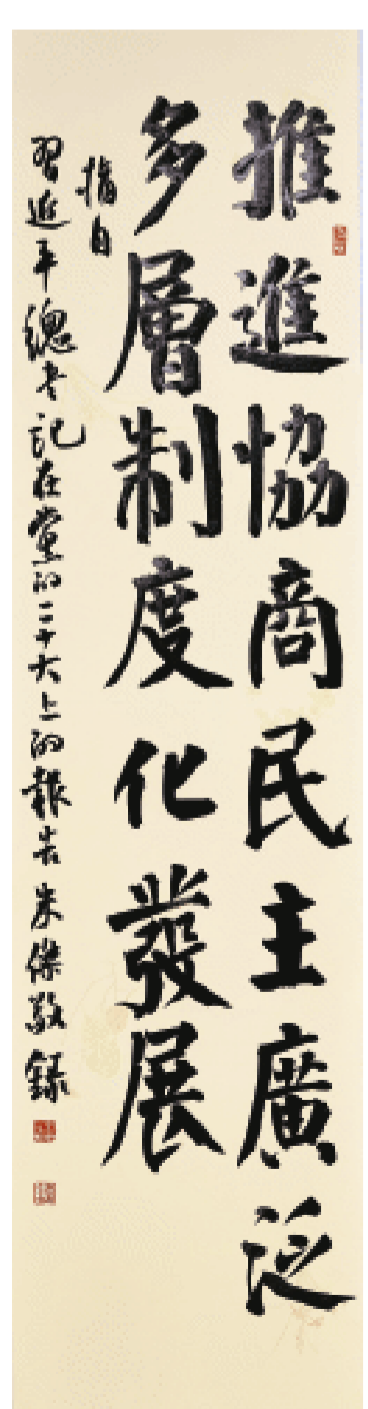 推進恊商民主廣泛
多層制度化發展
摘自
習近平總書記在黨的二十大上的報告 朱傑敬錄